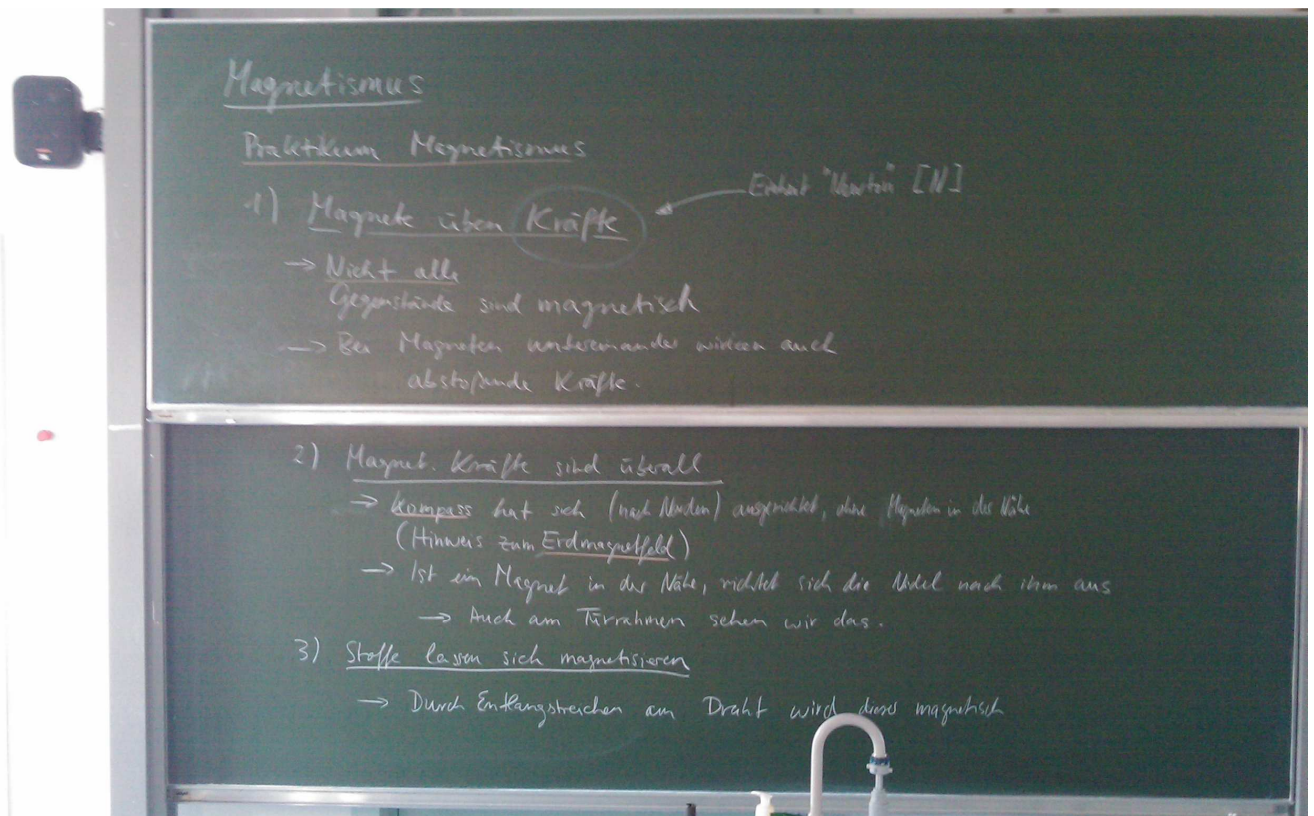 Magnetismus
Praktikum Magnetismus
1) Magnete üben Kräfte
Einheit "Newton" [N]
→ Nicht alle
Gegenstände sind magnetisch
→ Bei Magneten untereinander wirken auch
abstoßende Kräfte.
2) Magnet. Kräfte sind überall
→ Kompass hat sich (nach Norden) ausgerichtet, ohne Magneten in der Nähe
(Hinweis zum Erdmagnetfeld)
→ Ist ein Magnet in der Nähe, richtet sich die Nadel nach ihm aus
→ Auch am Türrahmen sehen wir das.
3) Stoffe lassen sich magnetisieren
→ Durch Entlangstreichen am Draht wird dieser magnetisch